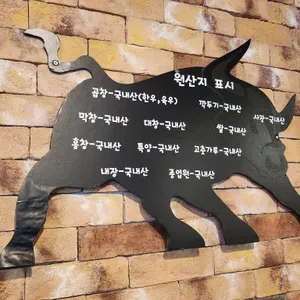 원산지 표시
곱창-국내산(한우,육우) 깍두기-국내산 사장-국내산
막창-국내산 대창-국내산 쌀-국내산
홍창-국내산 특양-국내산 고춧가루-국내산
내장-국내산 종업원-국내산